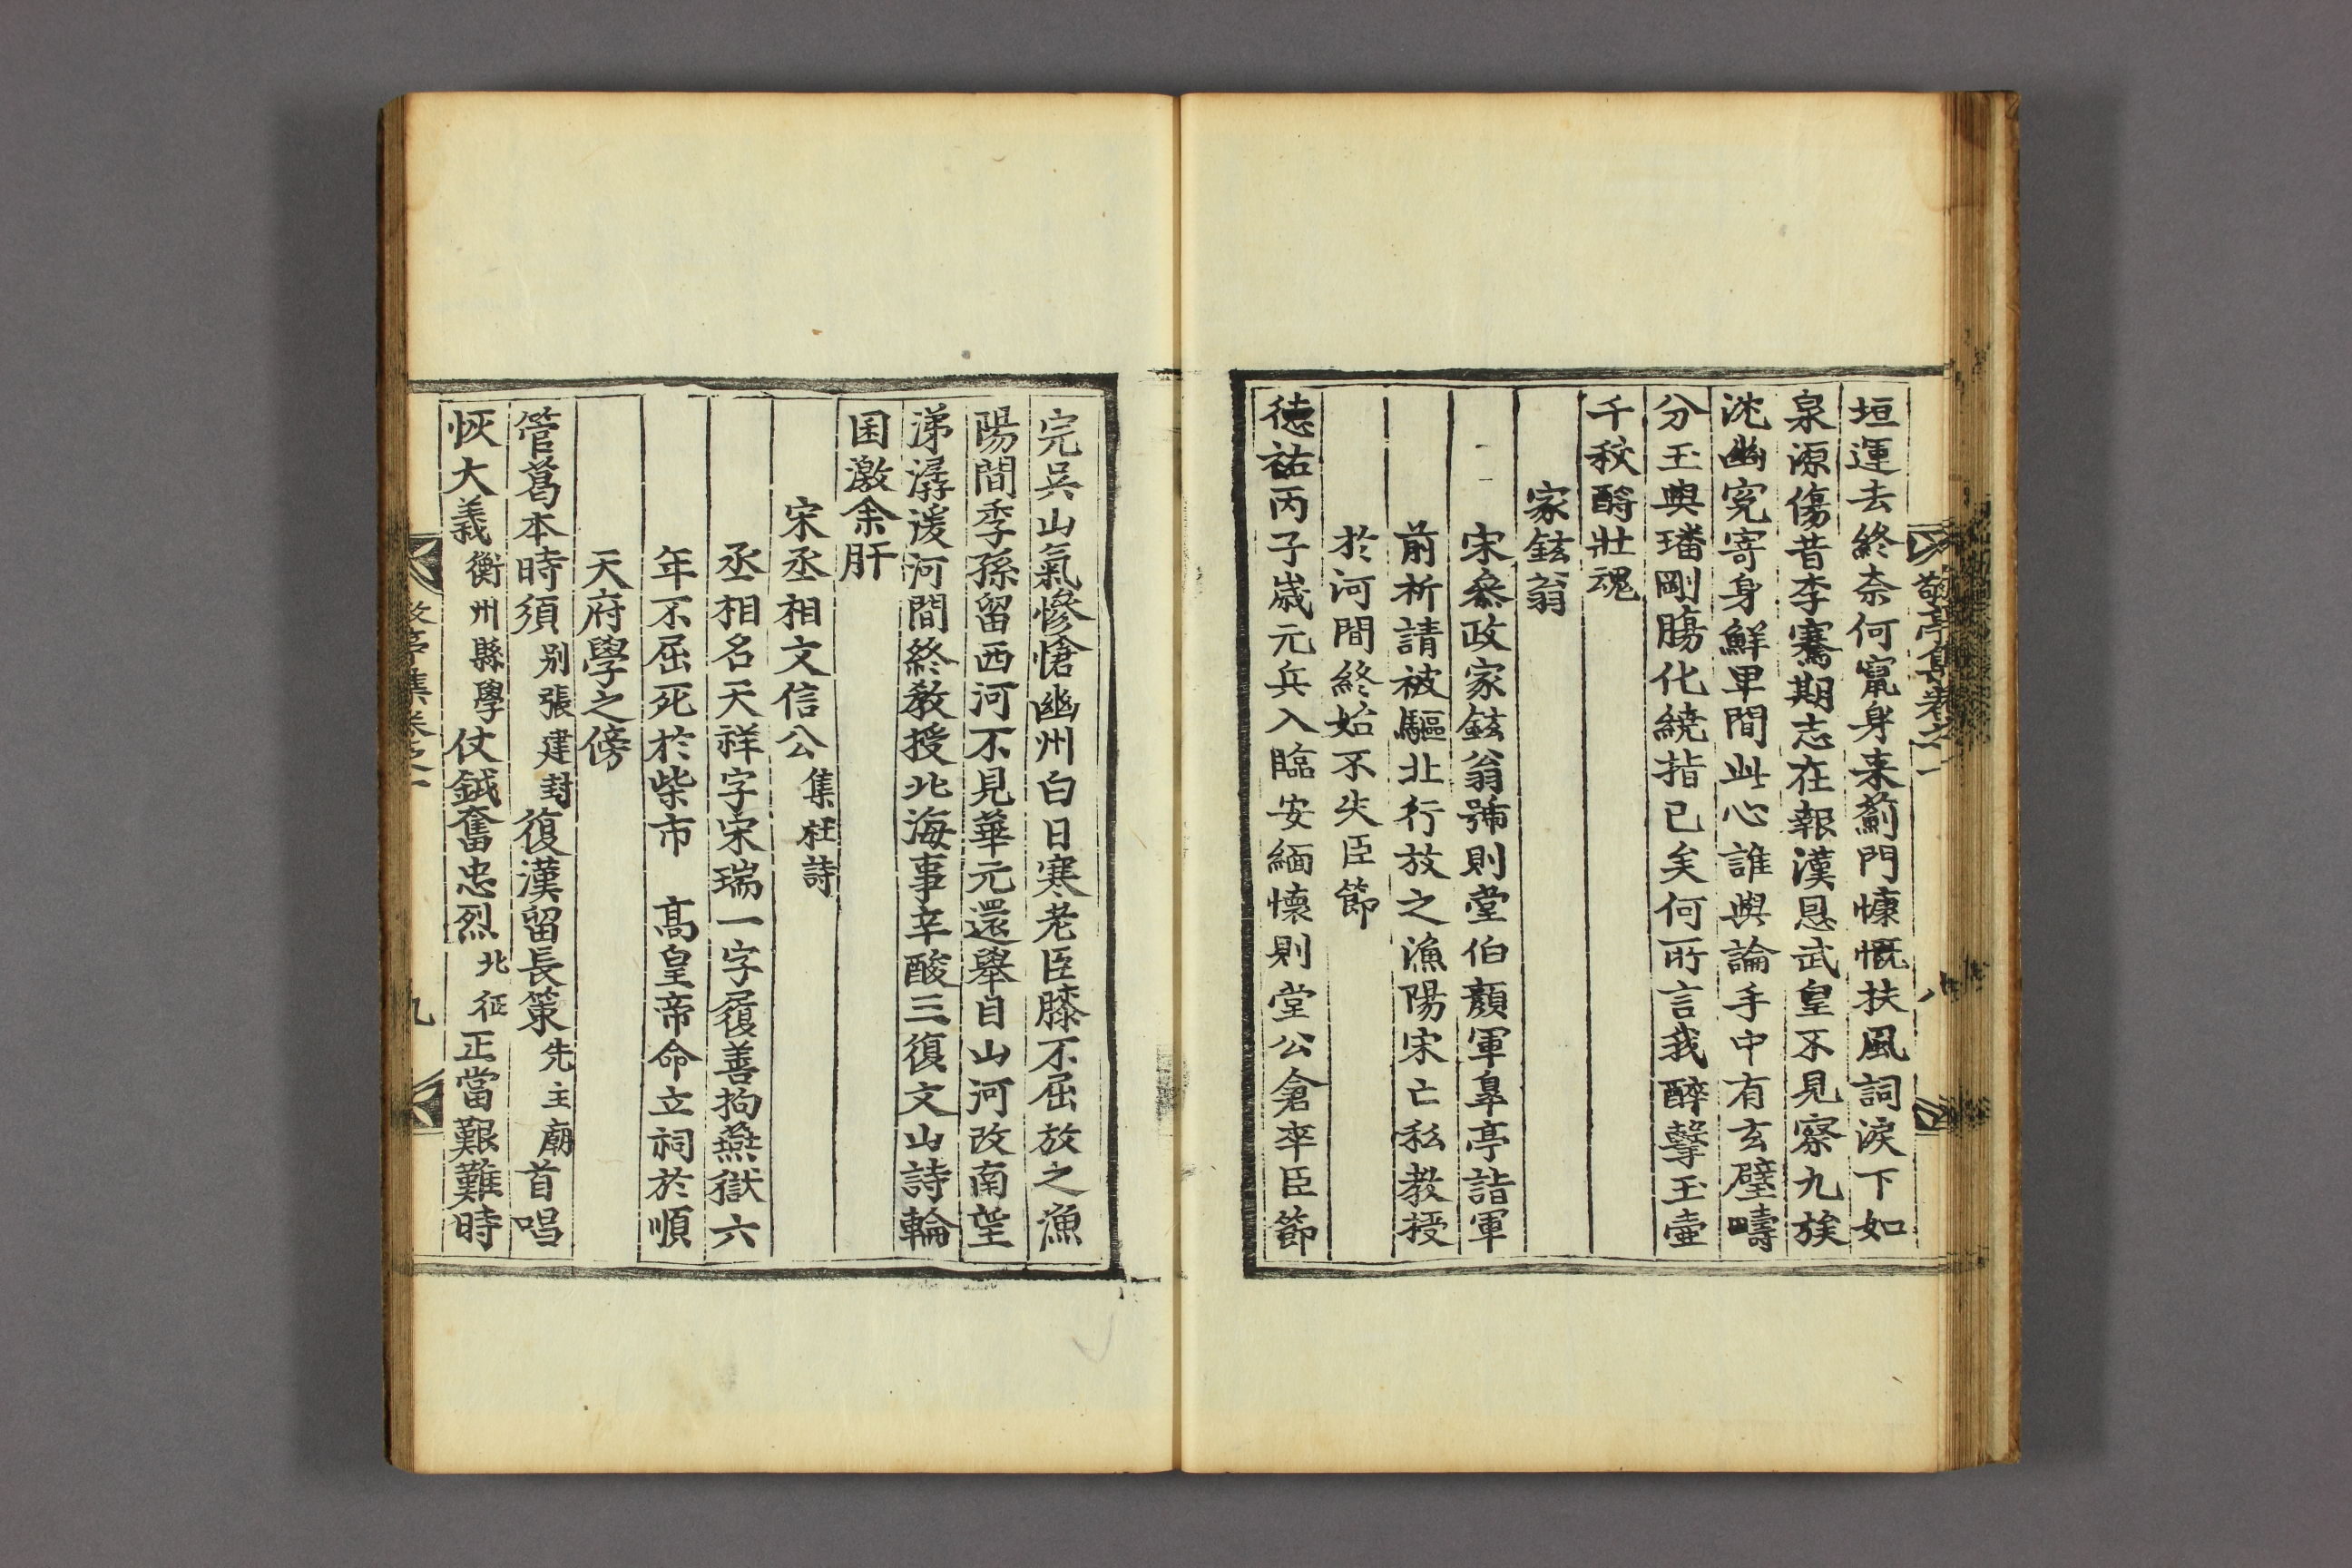 敬亭集卷之一 八
垣運去終奈何竄身来薊門慷慨扶風詞淚下如
泉源傷昔李騫期志在報漢恩武皇不見察九族
沈幽寃寄身鮮卑間此心誰與論手中有玄璧疇
分玉與璠剛膓化繞指已矣何所言我醉擊玉壷
千秋酹壯魂
家鉉翁
宋叅政家鉉翁號則堂伯顔軍皐亭詣軍
前祈請被驅北行放之漁陽宋亡私教授
於河間終始不失臣節
德祐丙子歲元兵入臨安緬懷則堂公倉卒臣節
完吳山氣慘愴幽州白日寒老臣膝不屈放之漁
陽間季孫留西河不見華元還舉目山河改南望
涕潺湲河間終教授北海事辛酸三復文山詩輪
囷激余肝
宋丞相文信公集杜詩
丞相名天祥字宋瑞一字履善拘燕獄六
年不屈死於柴市 高皇帝命立祠於順
天府學之傍
管葛本時須别張建封復漢留長策先主廟首唱
恢大義衡州縣學仗鉞奮忠烈北征正當艱難時
敬亭集卷之一 九